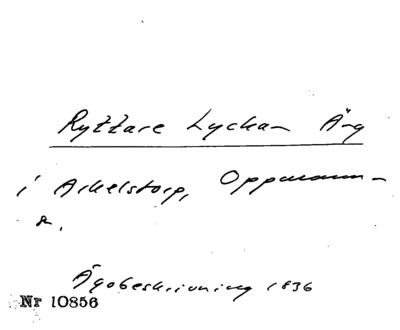 Ryttare Lyckan Äng
i Arkelstorp, Oppmanna-
s.
Ägobeskrivning 1836
Nr 10856